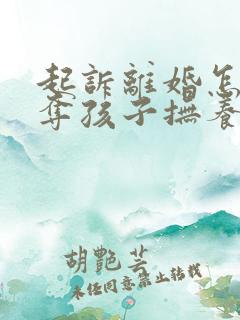 起訴離婚怎
奪孩子撫養
胡艷芸
未经同意禁止转载